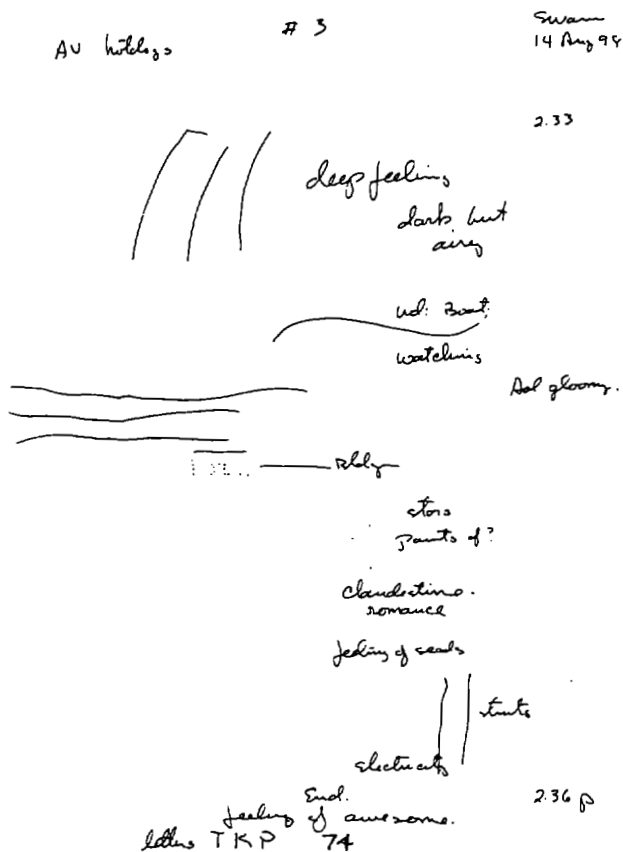 # 3
AV hotdogs
Swann
14 Aug 98
2.33
deep feeling
dark but
airy
Boat
watching
gloomy.
Bldg
stars
Points of?
clandestine.
romance
feeling of seals
electricity
End.
2.36 p
feeling of awesome.
letters TKP 74